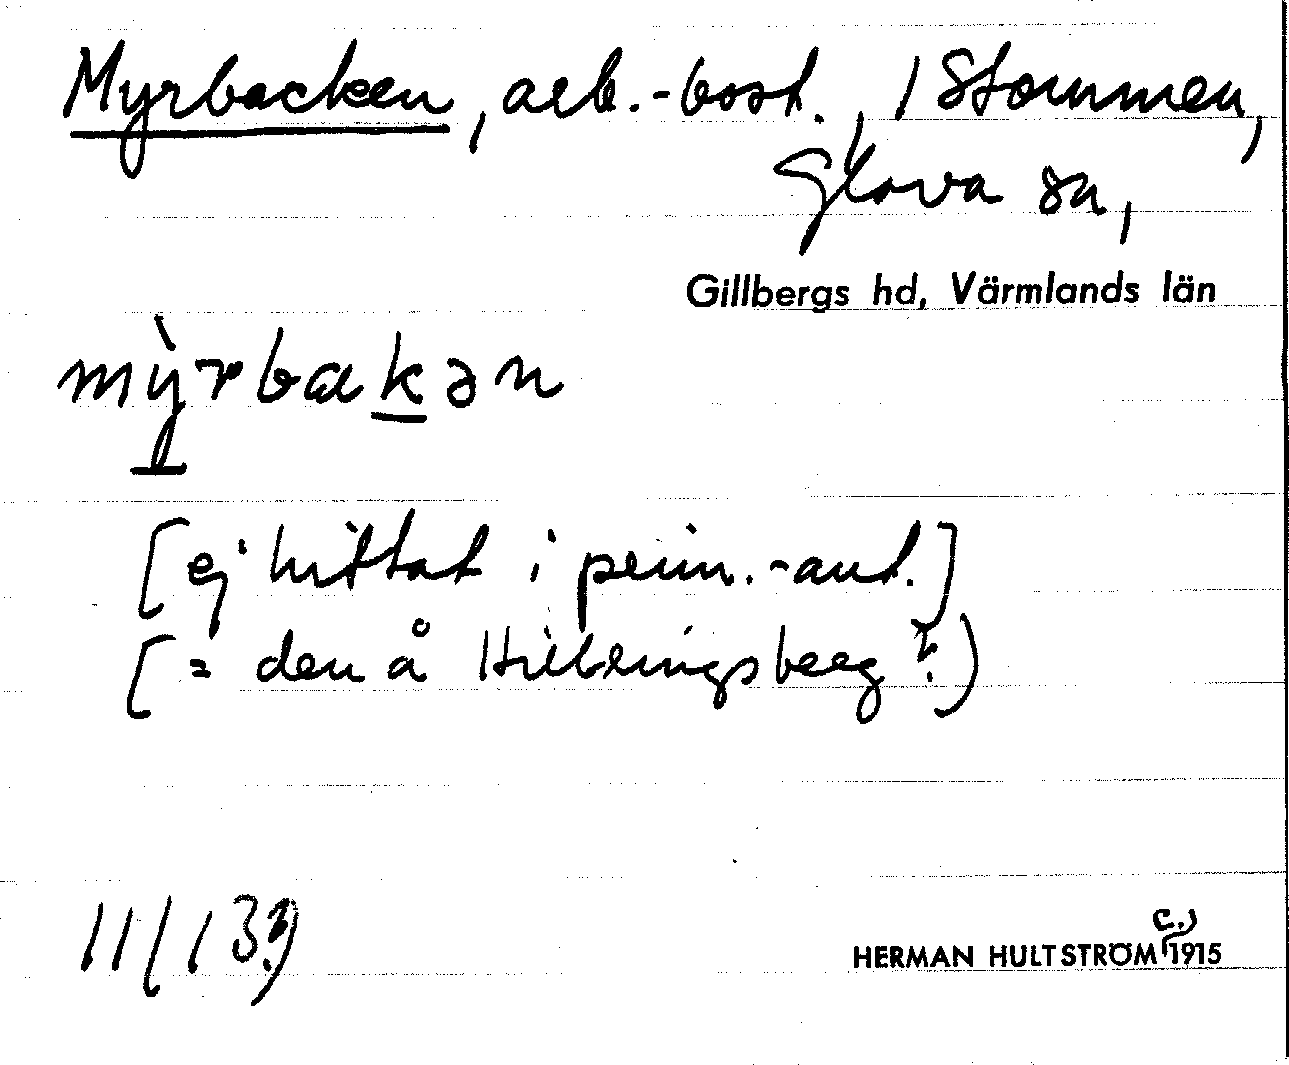 Myrbacken, arb.-bost., / Stommen,
Glava sn,
Gillbergs hd, Värmlands län
mỳrbakən
[ej hittat i prim.-ant.]
[= den å Hillringsberg?]
11/13
c.)
HERMAN HULTSTRÖM 1915